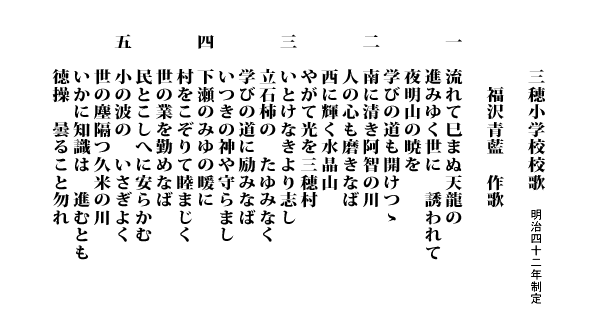 三穂小学校校歌　明治四十二年制定
福沢青藍　作歌
一
流れて巳まぬ天龍の
進みゆく世に　誘われて
夜明山の暁を
学びの道も開けつゝ
二
南に清き阿智の川
人の心も磨きなば
西に輝く水晶山
やがて光を三穂村
三
いとけなきより志し
立石柿の　たゆみなく
学びの道に励みなば
いつきの神や守らまし
四
下瀬のみゆの暖に
村をこぞりて睦まじく
世の業を勤めなば
民とこしへに安らかむ
五
小の波の　いさぎよく
世の塵隔つ久米の川
いかに知識は　進むとも
徳操　曇ること勿れ